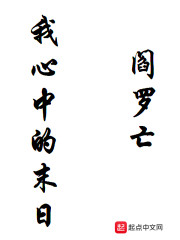 我心中的末日
阎罗亡
起 起点中文网